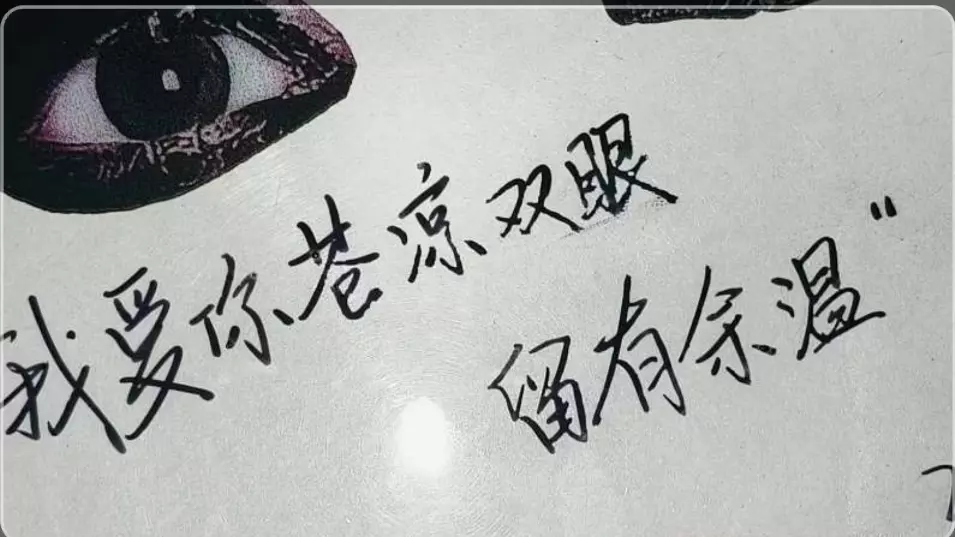 我爱你苍凉双眼
留有余温"